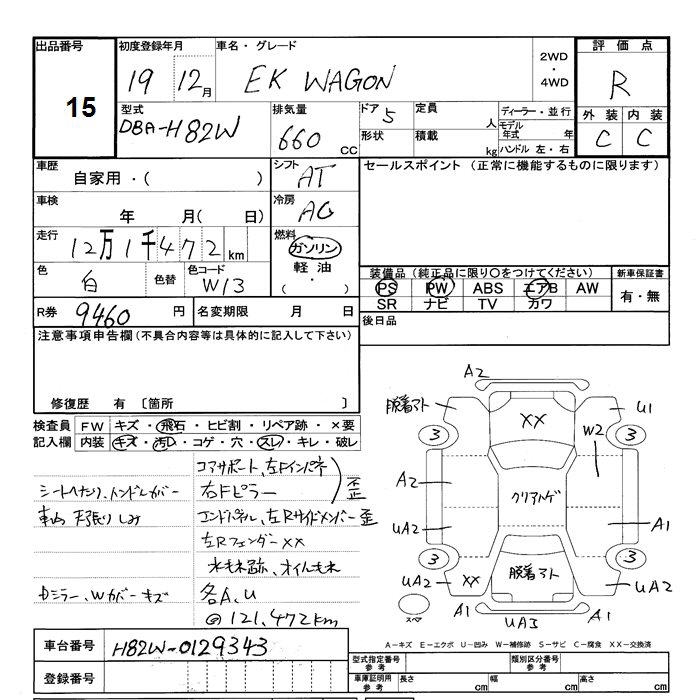 出品番号
15
初度登録年月
19 12月
車名・グレード
EK WAGON
2WD
・
4WD
評価点
R
型式
DBA-H82W
排気量
660 CC
ドア 5
形状
定員
人
積載
kg
ディーラー・並行
モデル年式 年
ハンドル 左・右
外装 内装
C C
車歴
自家用・( )
シフト
AT
セールスポイント (正常に機能するものに限ります)
車検
年 月( 日)
冷房
AC
走行
12万1千472km
燃料
ガソリン
軽油・
( )
色
白
色替
色コード
W13
装備品(純正品に限り○をつけてください)
新車保証書
PS PW ABS エアB AW
有・無
SR ナビ TV カワ
R券 9460 円
名変期限 月 日
後日品
注意事項申告欄(不具合内容等は具体的に記入して下さい)
修復歴 有〔箇所 〕
検査員記入欄
FW キズ・飛石・ヒビ割・リペア跡・×要
内装 キズ・汚レ・コゲ・穴・スレ・キレ・破レ
コアサポート、左Fインパネ
右Fピラー
歪
シートヘタリ、ハンドルカバー
エンドパネル、左Rサイドメンバー歪
左RフェンダーXX
Dミラー、Wカバーキズ
各A、U
@121,472km
A2
脱着アト
XX
U1
3
3
W2
A2
クリアハゲ
UA2
A1
3
3
UA2
XX
脱着アト
UA2
スペア
A1
UA3
A1
A-キズ E-エクボ U-凹み W-補修跡 S-サビ C-腐食 XX-交換済
車台番号
H82W-0129343
登録番号
型式指定番号
参考
類別区分番号
参考
車庫証明用
参考
長さ cm
幅 cm
高さ cm